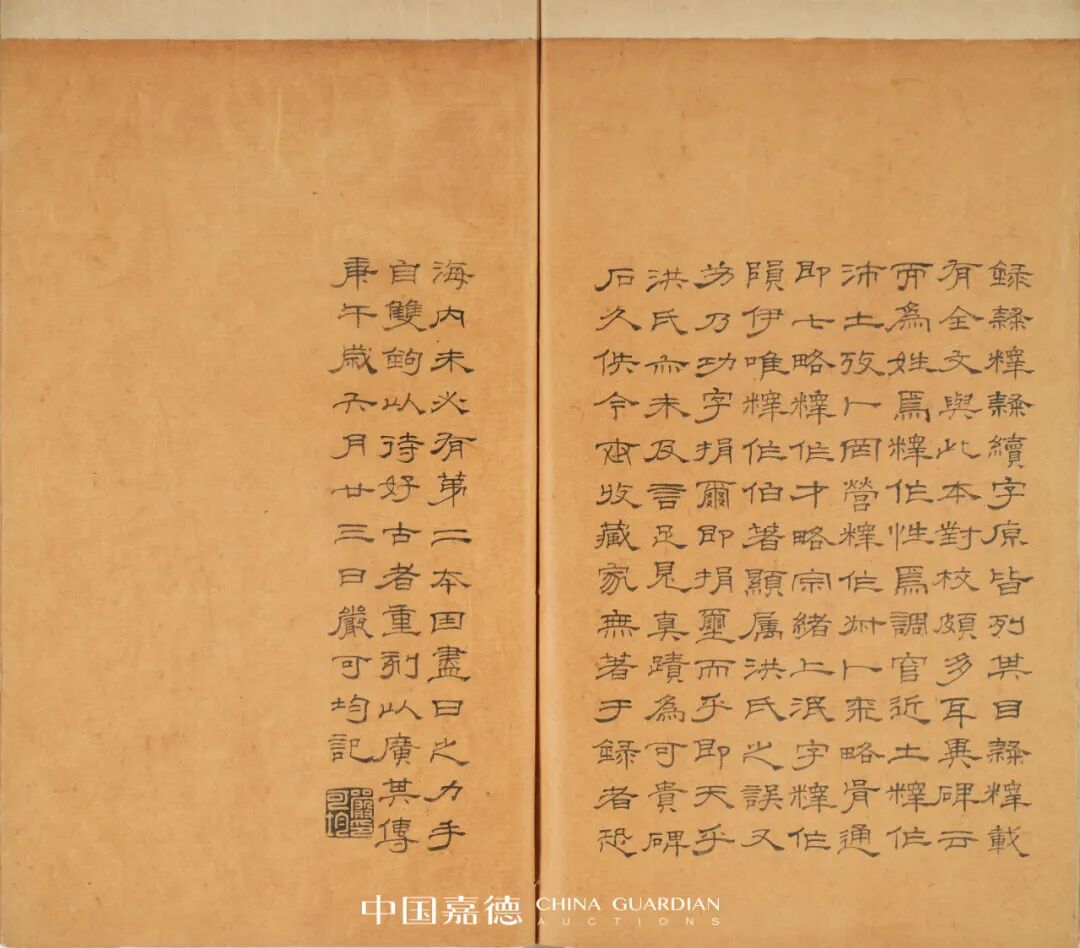 錄隸釋隸續字原皆列其目隸釋載
有全文與此本對校頗多耳異碑云
而為姓焉釋作性焉調官近土釋作
沛土攷卜罔營釋作卜罙略骨通
即七略釋作才略宗緒上泯字釋作
隕伊唯釋作伯著顯属洪氏之誤又
乃功字捐爾即捐璽而乎即天乎
洪氏亦未及言足見真蹟為可貴碑
石久佚今世收藏家無著于錄者恐
海內未必有第二本因盡日之力手
自雙鉤以待好古者重刻以廣其傳
庚午歲六月廿三日嚴可均記
嚴可均印
中国嘉德 CHINA GUARDIAN
AUCTIONS